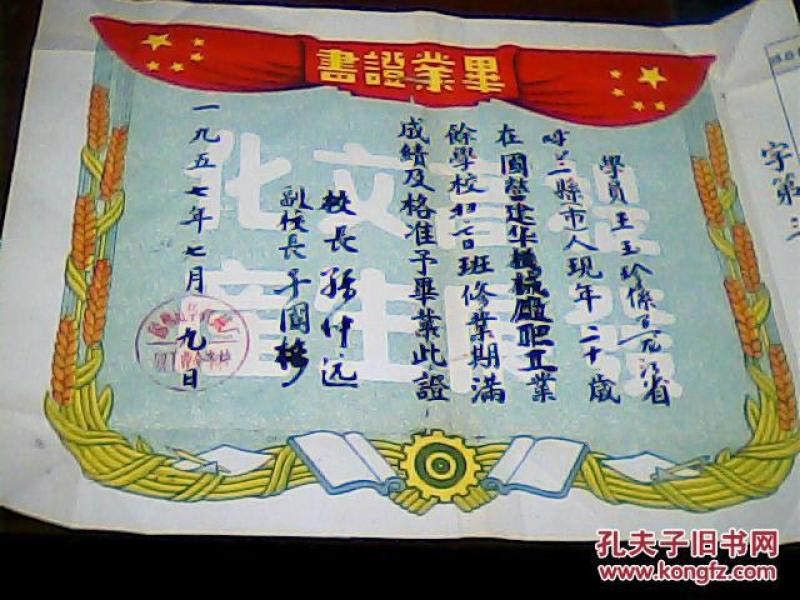 畢業證書
學員王玉珍係黑龍江省
呼蘭縣市人現年二十歲
在國營建华機械廠职工業
餘學校初七日班修業期滿
成績及格准予畢業此證
校長孫仲远
副校長于國彬
一九五七年七月九日
提高文化
發展生產
字第
孔夫子旧书网
www.kongfz.com